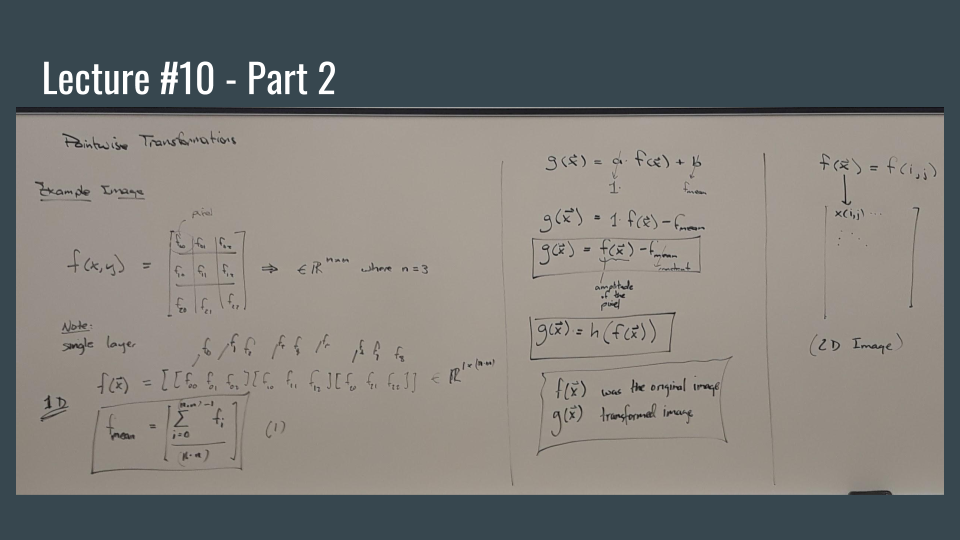 Lecture #10 - Part 2
Pointwise Transformations
Example Image
pixel
f(x,y) = [f₀₀ f₀₁ f₀₂
f₁₀ f₁₁ f₁₂
f₂₀ f₂₁ f₂₂] ⇒ ∈ ℝⁿˣⁿ where n=3
Note:
single layer
f₀ f₁ f₂ f₃ f₄ f₅ f₆ f₇ f₈
f(x⃗) = [[f₀₀ f₀₁ f₀₂][f₁₀ f₁₁ f₁₂][f₂₀ f₂₁ f₂₂]] ∈ ℝ^1×(n·n)
1D
f_mean = [∑_{i=0}^{(n·n)-1} f_i / (n·n)] (1)
g(x⃗) = a · f(x⃗) + b
1· f_mean
g(x⃗) = 1 · f(x⃗) - f_mean
g(x⃗) = f(x⃗) - f_mean
constant
amplitude
of the
pixel
g(x⃗) = h(f(x⃗))
f(x⃗) was the original image
g(x⃗) transformed image
f(x⃗) = f(i,j)
x(i,j) ...
(2D Image)